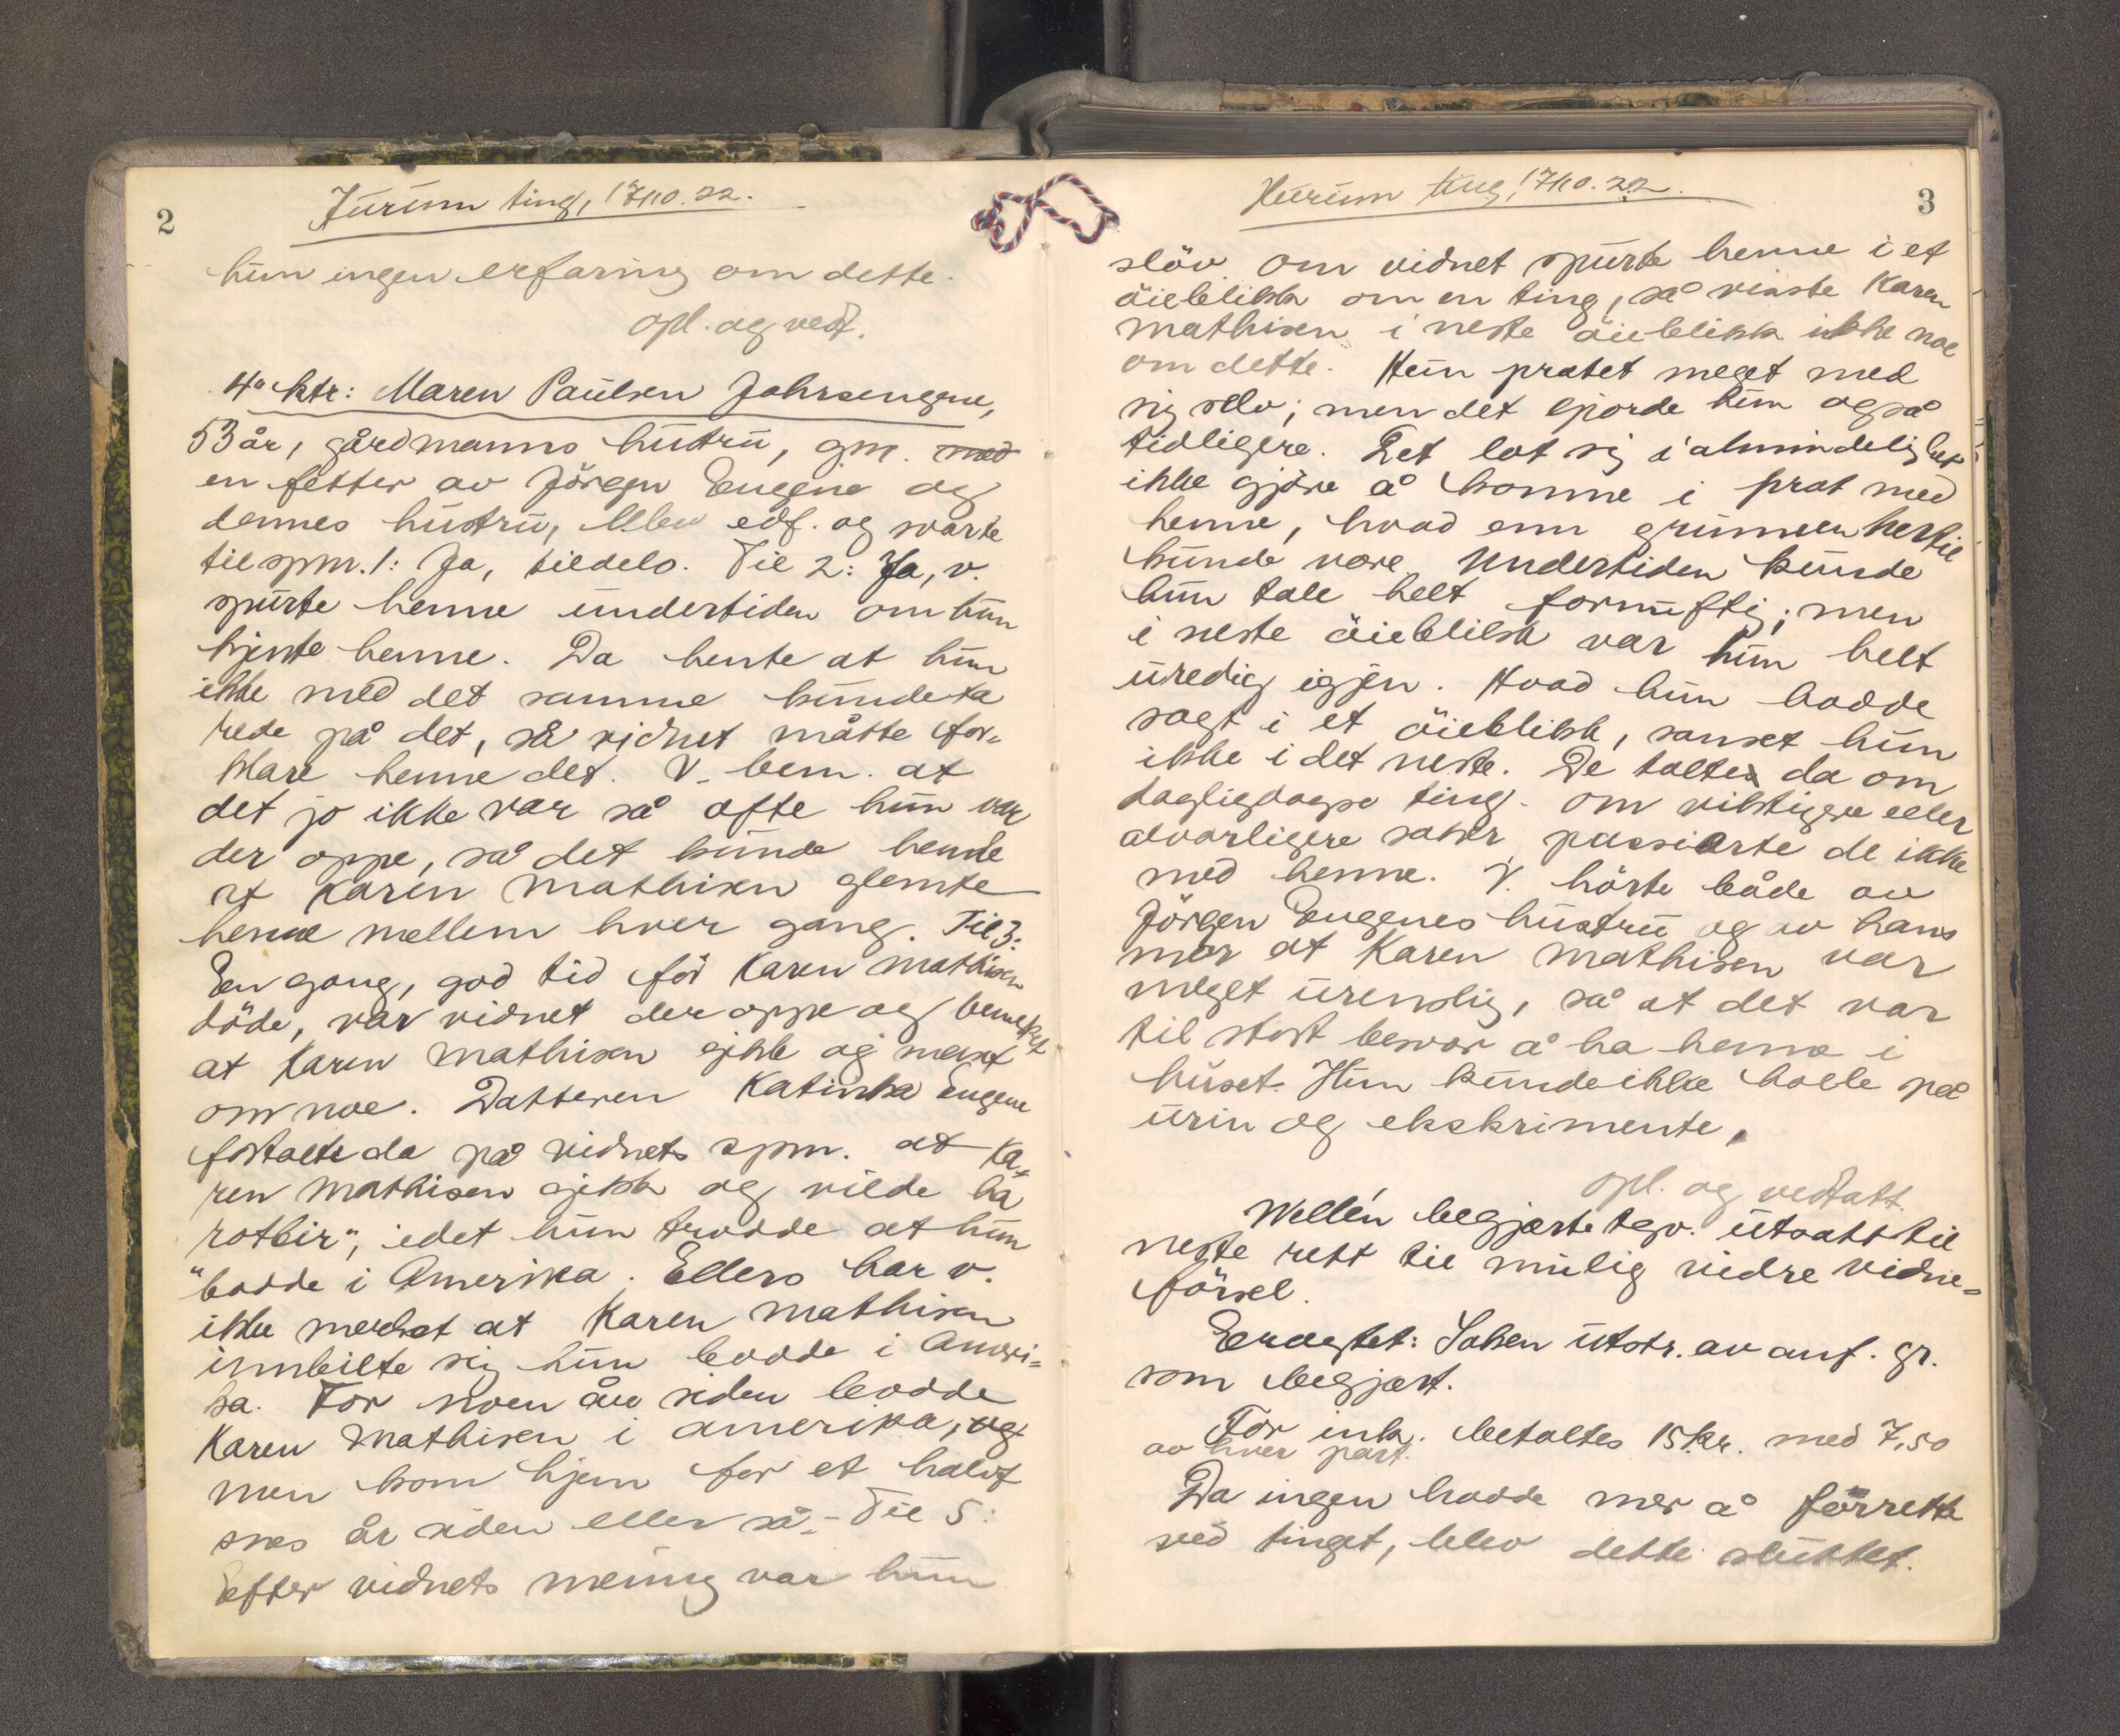 2
Hurum ting, 17/10.22.
hun ingen erfaring om dette.
opl. og vedt.
4de ktr: Maren Paulsen Jahrsengene,
53 år, gårdmanns hustru, gm. med
en fetter av Jörgen Eugene og
dennes hustru, blev edf. og svarte
til spm. 1: Ja, tildels. Til 2: Ja, v.
spurte henne undertiden om hun
kjente henne. Da hente at hun
ikke med det samme kunde ta
rede på det, så vidnet måtte for-
klare henne det. V. bem. at
det jo ikke var så ofte hun var
der oppe, så det kunde hende
at Karen Mathisen glemte
henne mellem hver gang. Til 3:
En gang, god tid för Karen Mathisen
döde, var vidnet der oppe og bemerket
at Karen Mathisen gikk og maset
om noe. Datteren Katinka Eugene
fortalte da på vidnets spm. at Ka-
ren Mathisen gikk og vilde ha
"rotbir", idet hun trodde at hun
"bodde i Amerika. Ellers har v.
ikke merket at Karen Mathisen
innbilte sig hun bodde i Ameri-
ka. For noen år siden bodde
Karen Mathisen i Amerika, og
men kom hjem for et halvt
snes år siden eller så. - Til 5:
Efter vidnets mening var hun
Hurum ting, 17/10.22.
3
slöv. Om vidnet spurte henne i et
öieblikk om en ting, så visste Karen
Mathisen i neste öieblikk ikke noe
om dette. Hun pratet meget med
sig selv; men det gjorde hun også
tidligere. Det lot sig i almindelighet
ikke gjöre å komme i prat med
henne, hvad enn grunnen hertil
kunde være. Undertiden kunde
hun tale helt fornuftig; men
i neste öieblikk var hun helt
uredig igjen. Hvad hun hadde
sagt i et öieblikk, sanset hun
ikke i det neste. De talte da om
dagligdagse ting. Om viktigere eller
alvorligere saker passiarte de ikke
med henne. V. hörte både av
Jörgen Eugenes hustru og av hans
mor at Karen Mathisen var
meget urenslig, så at det var
til stort besvær å ha henne i
huset. Hun kunde ikke holle på
urin og ekskrimente.
opl. og vedtatt.
Wellén begjærte tgv. utsatt til
neste rett til mulig vidre vidne-
försel.
Eragtet: Saken utstr. av anf. gr.
som begjært.
For ink. betaltes 15 kr. med 7,50
av hver part.
Da ingen hadde mer å forrette
ved tinget, blev dette sluttet.